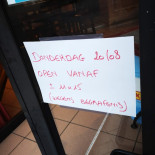 DONDERDAG 20/08
OPEN VANAF
(WEGENS BEGRAFENIS)